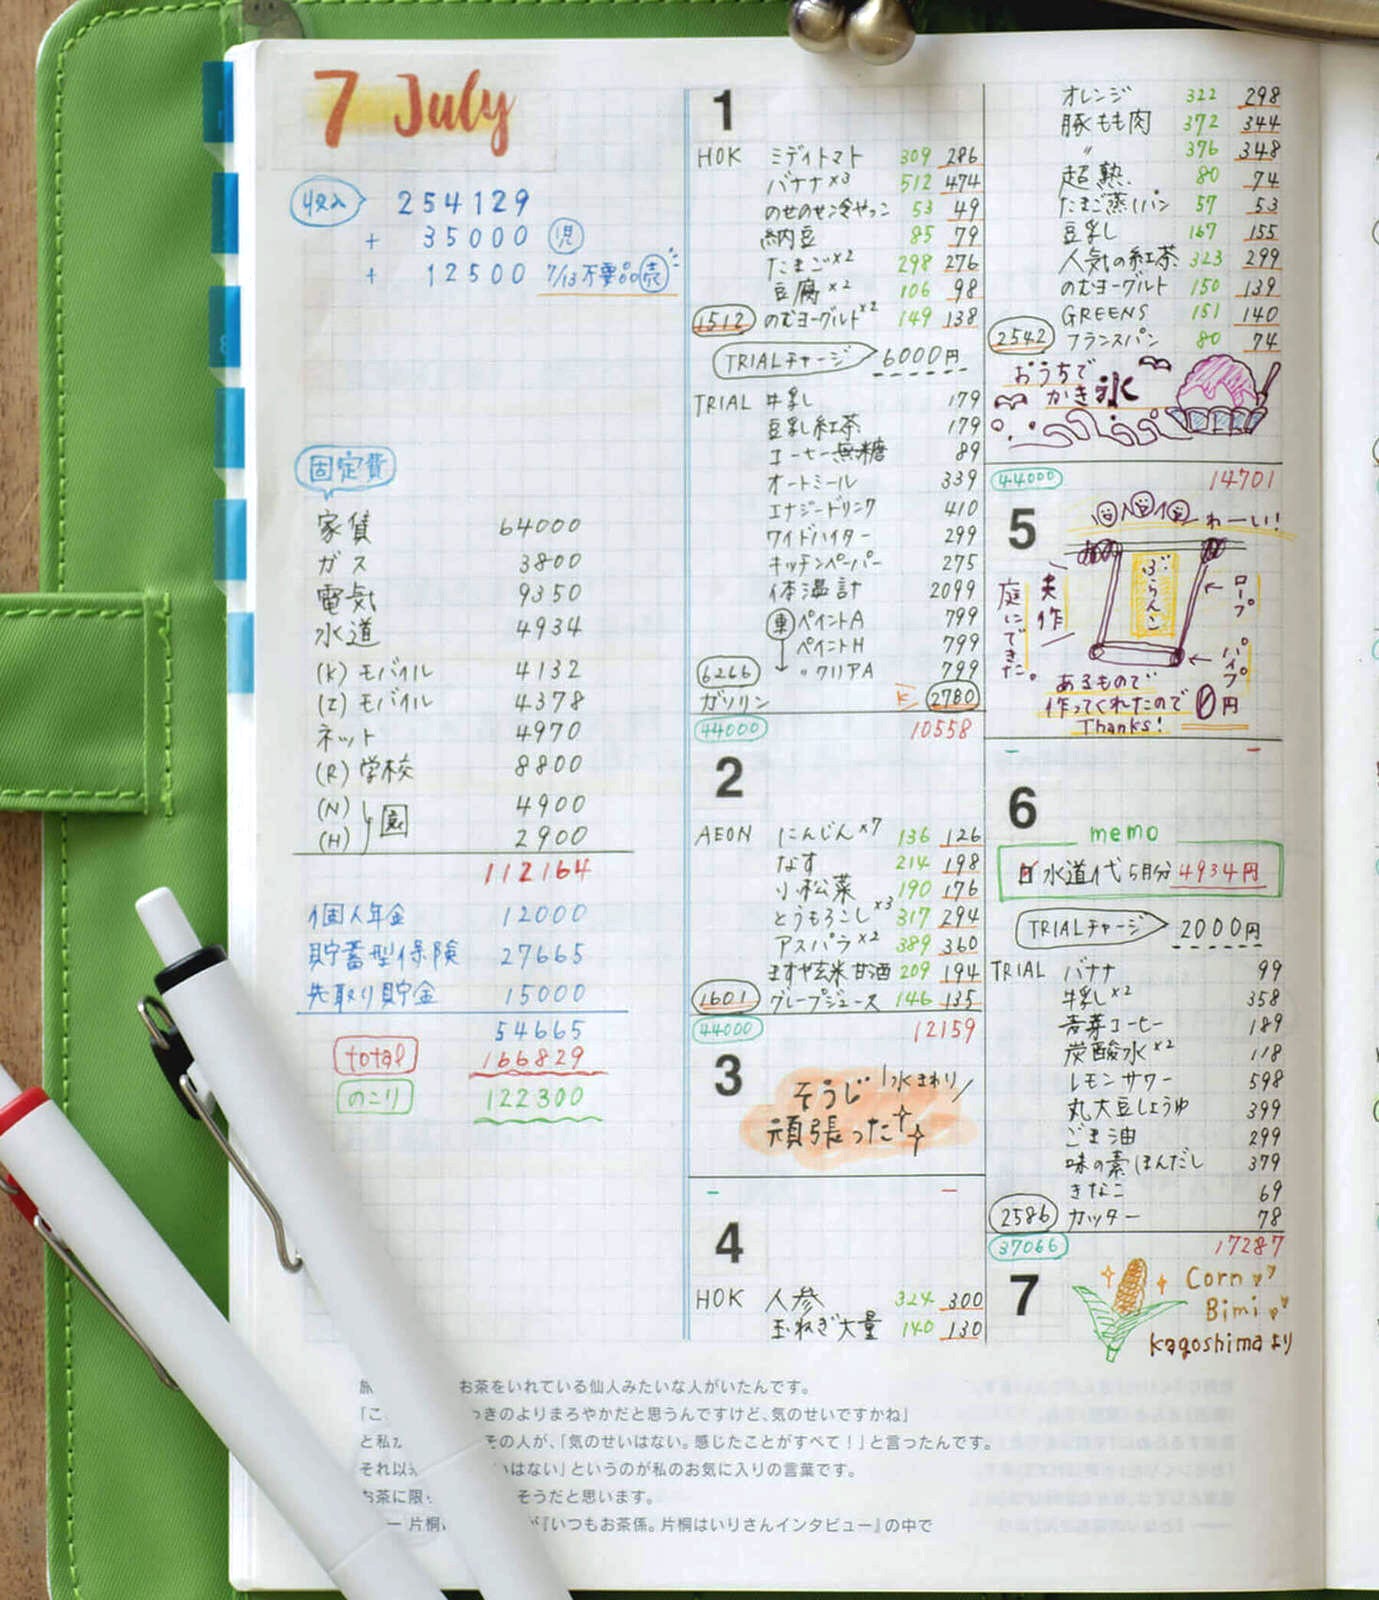 7 July
収入 254129
+ 35000 児
+ 12500 7/13不要品売
固定費
家賃 64000
ガス 3800
電気 9350
水道 4934
(K) モバイル 4132
(I) モバイル 4378
ネット 4970
(R) 学校 8800
(N) 4900
園
(H) 2900
112164
個人年金 12000
貯蓄型保険 27665
先取り貯金 15000
54665
total 166829
のこり 122300
1
HOK ミディトマト 309 286
バナナ×3 512 474
のせのせ冷やっこ 53 49
納豆 85 79
たまご×2 298 276
豆腐×2 106 98
1512 のむヨーグルト×2 149 138
TRIALチャージ 6000円
TRIAL 牛乳 179
豆乳紅茶 179
コーヒー無糖 89
オートミール 339
エナジードリンク 410
ワイドハイター 299
キッチンペーパー 275
体温計 2099
車 ペイントA 799
ペイントH 799
6266 〃クリアA 799
ガソリン K 2780
44000 10558
2
AEON にんじん×7 136 126
なす 214 198
小松菜 190 176
とうもろこし×3 317 294
アスパラ×2 389 360
ますや玄米甘酒 209 194
1601 グレープジュース 146 135
44000 12159
3
そうじ 水まわり
頑張った
- -
4
HOK 人参 324 300
玉ねぎ大量 140 130
オレンジ 322 298
豚もも肉 372 344
〃 376 348
超熟 80 74
たまご蒸しパン 57 53
豆乳 167 155
人気の紅茶 323 299
のむヨーグルト 150 139
GREENS 151 140
2542 フランスパン 80 74
おうちで
かき氷
氷
44000 14701
5
わーい!
ぶらんこ
ロープ
パイプ
夫作
庭にできた。
あるもので
作ってくれたので 0円
Thanks!
- -
6
memo
水道代 5月分 4934円
TRIALチャージ 2000円
TRIAL バナナ 99
牛乳×2 358
麦芽コーヒー 189
炭酸水×2 118
レモンサワー 598
丸大豆しょうゆ 399
ごま油 299
味の素ほんだし 379
きなこ 69
2586 カッター 78
37066 17287
7
Corn
Bimi
Kagoshimaより
お茶をいれている仙人みたいな人がいたんです。
「こ きのよりまろやかだと思うんですけど、気のせいですかね」
と私 その人が、「気のせいはない。感じたことがすべて！」と言ったんです。
それ以 いはない」というのが私のお気に入りの言葉です。
お茶に限 そうだと思います。
― 片桐 が『いつもお茶係。片桐はいりさんインタビュー』の中で